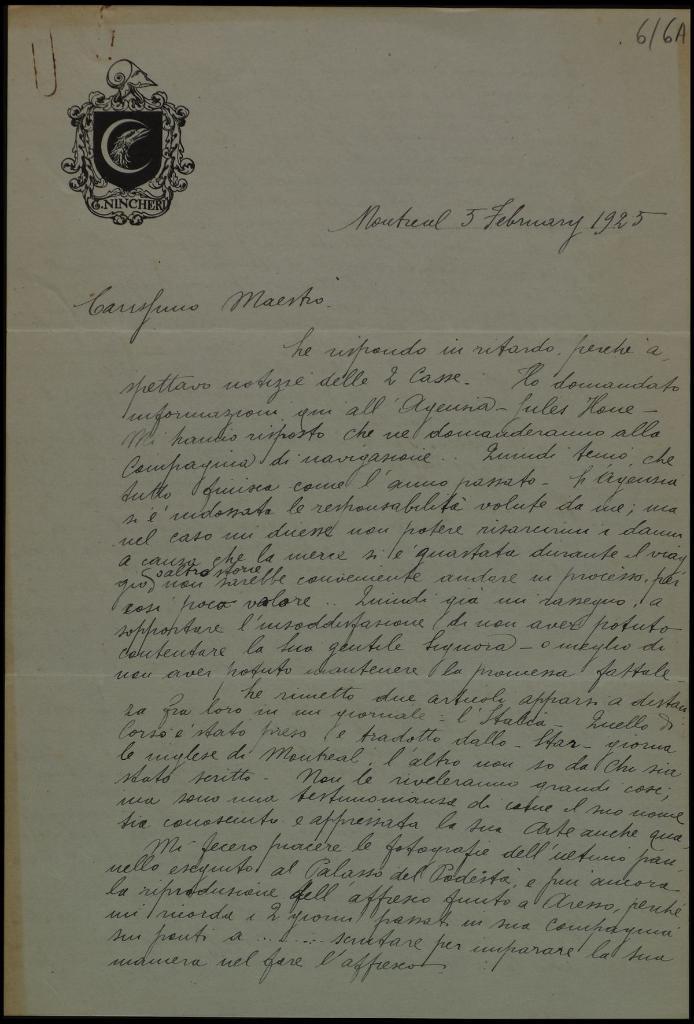 6/6A
G. NINCHERI
Montreal 5 February 1925
Carissimo Maestro.
Le rispondo in ritardo, perchè a,
spettavo notizie delle 2 Casse. Ho domandato
informazioni qui all'Agenzia - Jules Hone -
Mi hanno risposto che ne domanderanno alla
Compagnia di navigazione.. Quindi temo, che
tutto finisca come l'anno passato - L'Agenzia
si è indossata le responsabilità volute da me; ma
nel caso mi dicesse non potere risarcirmi i danni
a causa che la merce si è guastata durante il viag
gio o altre storie non sarebbe conveniente andare in processo, per
così poco valore.. Quindi già mi rassegno, a
sopportare l'insoddisfazione di non aver potuto
contentare la Sua gentile Signora - o meglio di
non aver potuto mantenere la promessa fattale -
Le rimetto due articoli apparsi a distan
za fra loro in un giornale - l'Italia - Quello di
Corso è stato preso e tradotto dallo - Star - giorna
le inglese di Montreal, l'altro non so da chi sia
stato scritto - Non le riveleranno grandi cose;
ma sono una testimonianza di come il suo nome
sia conosciuto e apprezzata la sua Arte anche qua,
Mi fecero piacere le fotografie dell'ultimo pan
nello eseguito al Palazzo del Podestà, e più ancora
la riproduzione dell'affresco finito a Arezzo, perchè
mi ricorda i 2 giorni passati in sua compagnia
sui ponti a ........ scrutare per imparare la sua
maniera nel fare l'affresco.